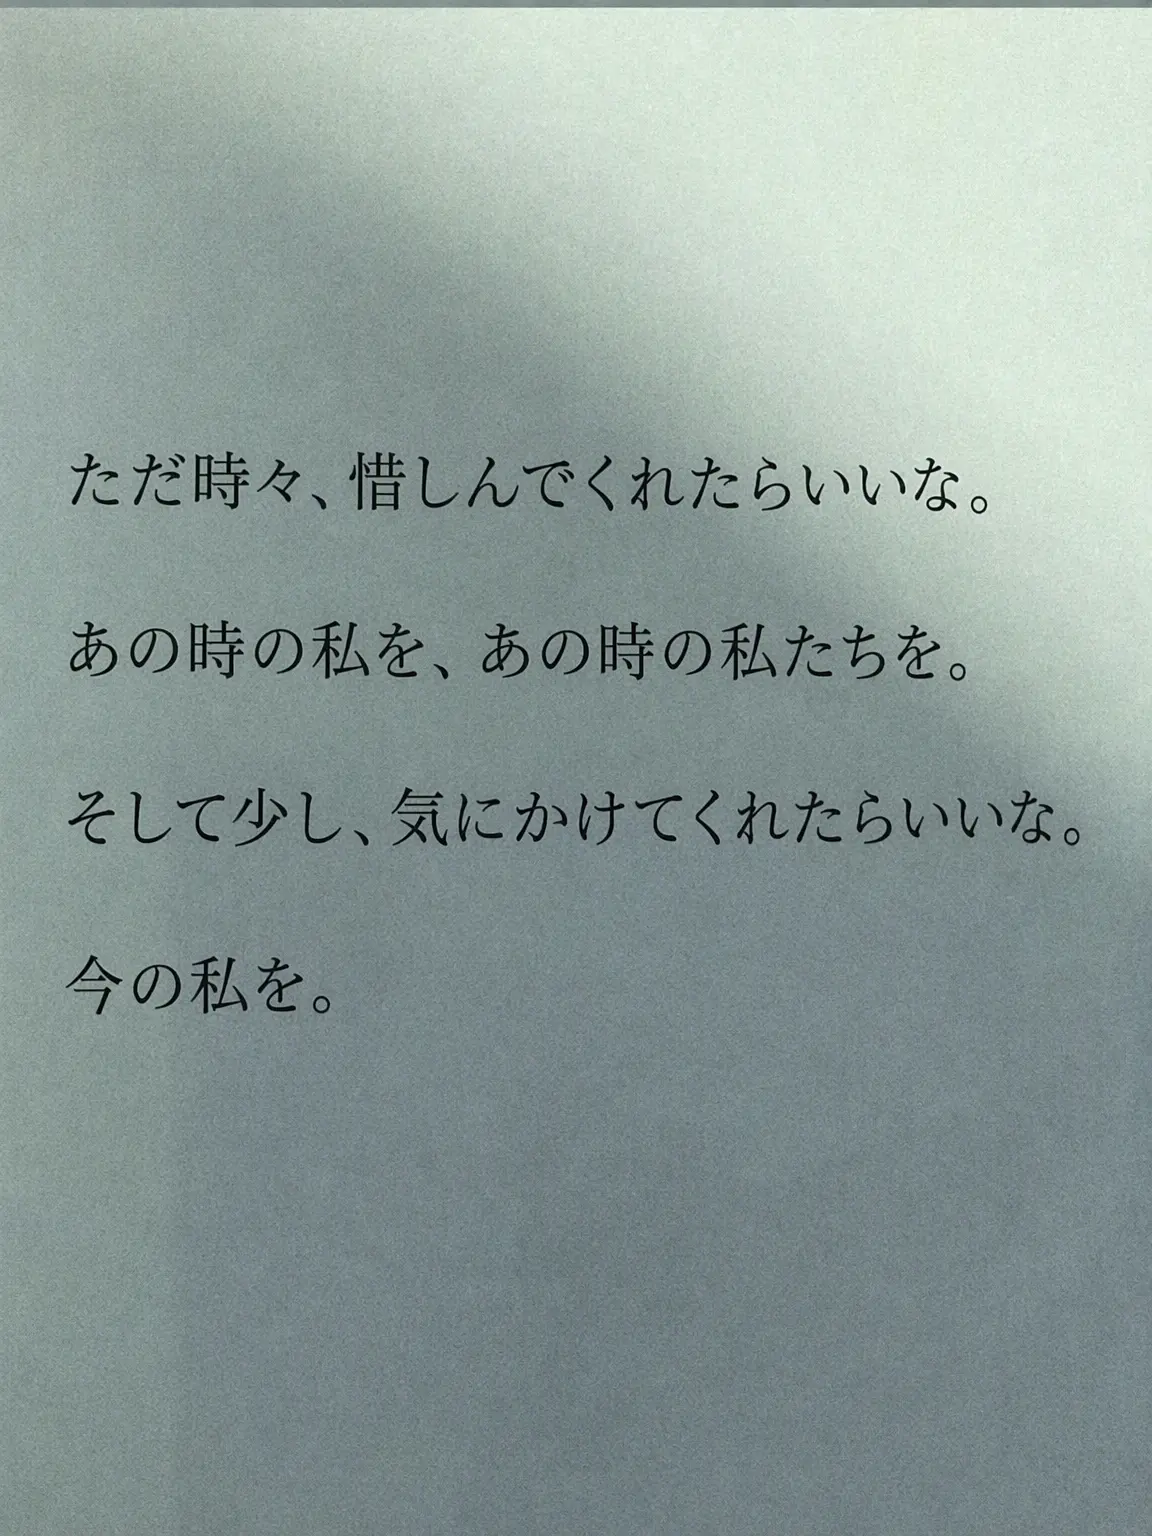 ただ時々、惜しんでくれたらいいな。
あの時の私を、あの時の私たちを。
そして少し、気にかけてくれたらいいな。
今の私を。